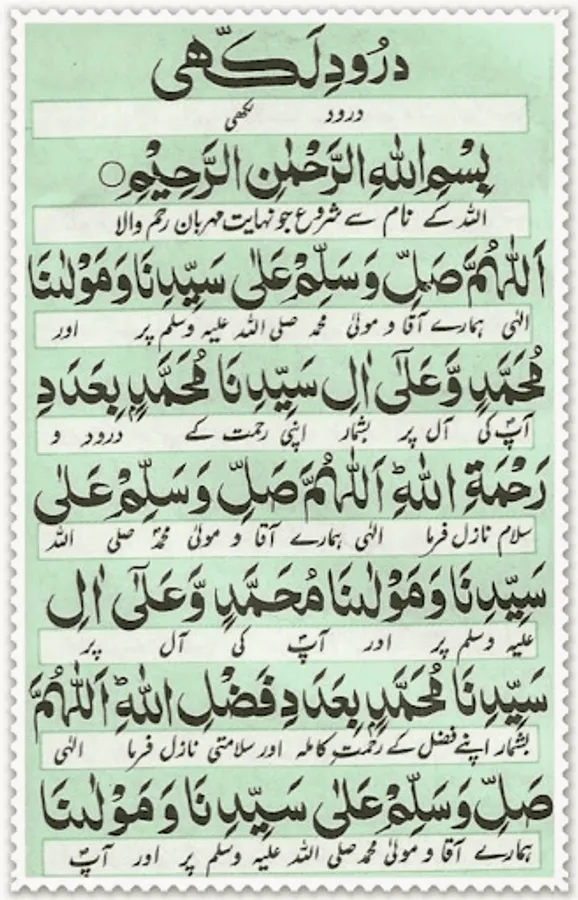 درُودِ لَکِّھی
درود لکھی
بِسْمِ اللهِ الرَّحْمٰنِ الرَّحِيْمِ ○
اللہ کے نام سے شروع جو نہایت مہربان رحم والا
اَللّٰهُمَّ صَلِّ وَسَلِّمْ عَلٰى سَيِّدِنَا وَمَوْلٰىنَا
الٰہی ہمارے آقا و مولیٰ محمد صلی اللہ علیہ وسلم پر اور
مُحَمَّدٍ وَّعَلٰٓى اٰلِ سَيِّدِنَا مُحَمَّدٍۭ بِعَدَدِ
آپؐ کی آل پر بشمار اپنی رحمت کے درود و
رَحْمَةِ اللهِ ؕ اَللّٰهُمَّ صَلِّ وَسَلِّمْ عَلٰى
سلام نازل فرما الٰہی ہمارے آقا و مولیٰ محمدؐ صلی اللہ
سَيِّدِنَا وَمَوْلٰىنَا مُحَمَّدٍ وَّعَلٰٓى اٰلِ
علیہ وسلم پر اور آپؐ کی آل پر
سَيِّدِنَا مُحَمَّدٍۭ بِعَدَدِ فَضْلِ اللهِ ؕ اَللّٰهُمَّ
بشمار اپنے فضل کے رحمتِ کاملہ اور سلامتی نازل فرما الٰہی
صَلِّ وَسَلِّمْ عَلٰى سَيِّدِنَا وَمَوْلٰىنَا
ہمارے آقا و مولیٰ محمد صلی اللہ علیہ وسلم پر اور آپؐ